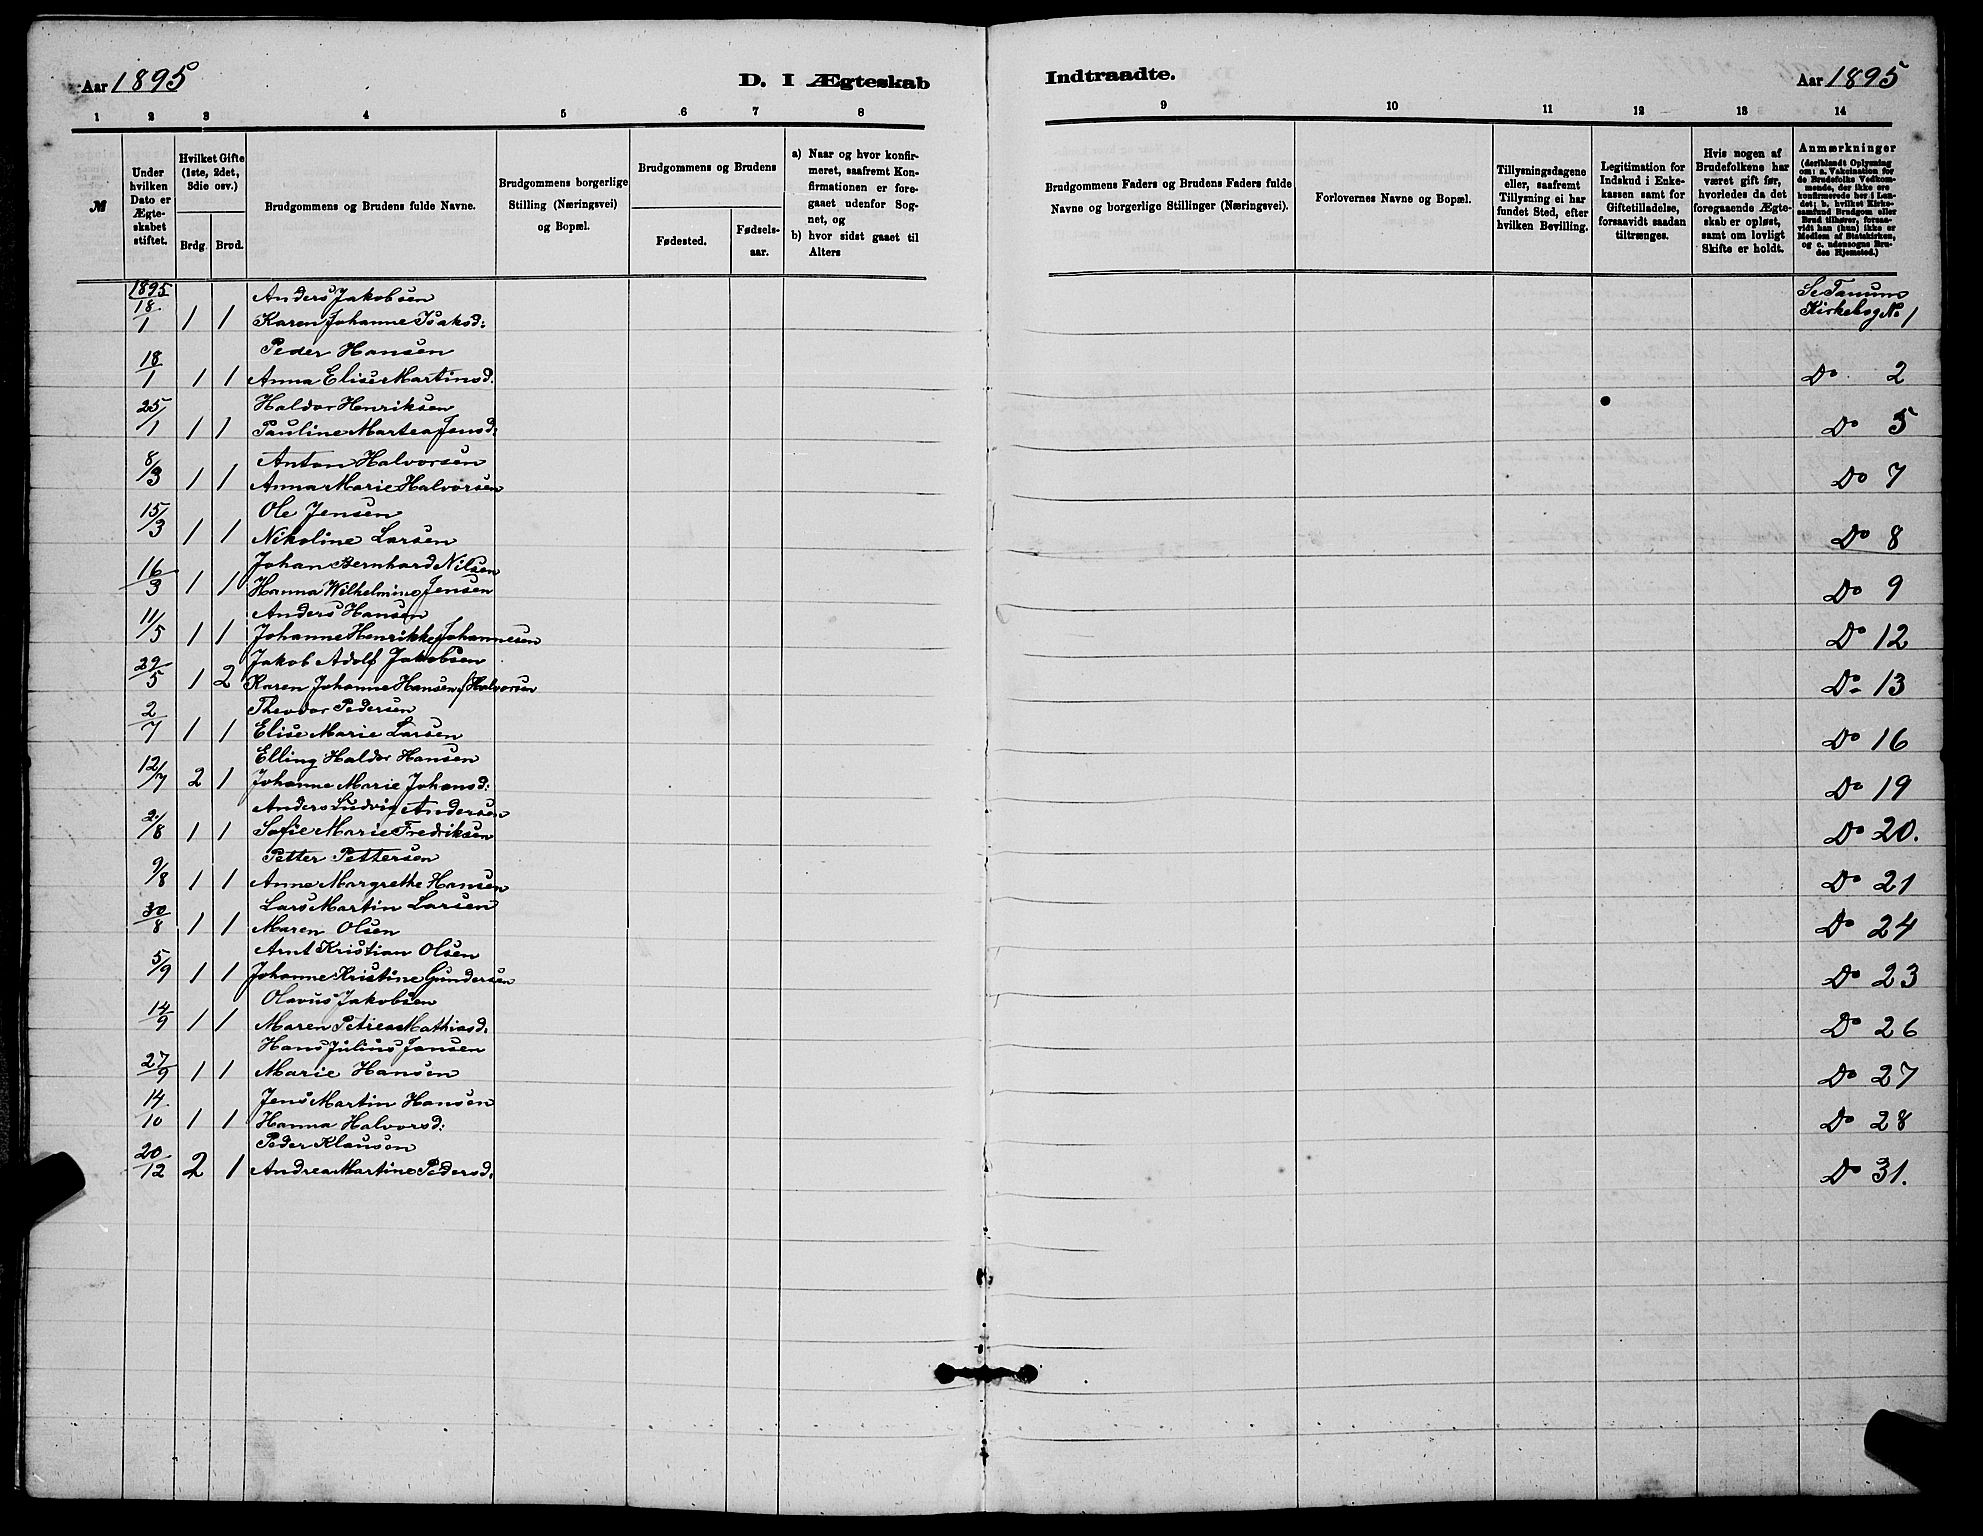 Aar 1895 D. I Ægteskab Indtraadte. Aar 1895
1 2 3 4 5 6 7 8 9 10 11 12 13 14
№
Under hvilken Dato er Ægteskabet stiftet.
Hvilket Gifte (1ste, 2det, 3die osv.)
Brdg. Brud.
Brudgommens og Brudens fulde Navne.
Brudgommens borgerlige Stilling (Næringsvei) og Bopæl.
Brudgommens og Brudens
Fødested. Fødselsaar.
a) Naar og hvor konfirmeret, saafremt Konfirmationen er foregaaet udenfor Sognet, og
b) hvor sidst gaaet til Alters
Brudgommens Faders og Brudens Faders fulde Navne og borgerlige Stillinger (Næringsvei).
Forlovernes Navne og Bopæl.
Tillysningsdagene eller, saafremt Tillysning ei har fundet Sted, efter hvilken Bevilling.
Legitimation for Indskud i Enkekassen samt for Giftetilladelse, forsaavidt saadan tiltrænges.
Hvis nogen af Brudefolkene har været gift før, hvorledes da det foregaaende Ægteskab er opløst, samt om lovligt Skifte er holdt.
Anmærkninger
(deriblandt Oplysning om: a. Vakcination for de Brudefolks Vedkommende, der ikke ere konfirmerede her i Landet; b. hvilket Kirkesamfund Brudgom eller Brud tilhører, forsaavidt han (hun) ikke er Medlem af Statskirken, og c. udensogns Brudes Hjemsted.)
1895 Anders Jakobsen Se Tanums
18/1 1 1 Karen Johanne Isaksd: Kirkebog № 1
Peder Hansen
18/1 1 1 Anna Elise Martinsd. Do 2
Haldor Henriksen
25/1 1 1 Pauline Martea Jensd: Do 5
Anton Halvorsen
8/3 1 1 Anna Marie Halvorsen Do 7
Ole Jensen
15/3 1 1 Nikoline Larsen Do 8
Johan Bernhard Nilsen
16/3 1 1 Hanna Wilhelmine Jensen Do 9
Anders Hansen
11/5 1 1 Johanne Henrikke Johannesen Do 12
Jakob Adolf Jakobsen
29/5 1 2 Karen Johanne Hansen f Halvorsen Do 13
Theodor Pedersen
2/7 1 1 Elise Marie Larsen Do 16
Elling Haldor Hansen
12/7 2 1 Johanne Marie Johansd: Do 19
Anders Ludvig Andersen
2/8 1 1 Sofie Marie Fredriksen Do 20.
Petter Pettersen
9/8 1 1 Anne Margrethe Hansen Do 21
Lars Martin Larsen
30/8 1 1 Maren Olsen Do 24
Arnt Kristian Olsen
5/9 1 1 Johanne Kristine Gundersen Do 23
Olavus Jakobsen
14/9 1 1 Maren Petrea Mathiasd: Do 26
Hans Julius Jansen
27/9 1 1 Marie Hansen Do 27
Jens Martin Hansen
14/10 1 1 Hanna Halvorsd: Do 28
Peder Klausen
20/12 2 1 Andrea Martine Pedersd: Do 31.